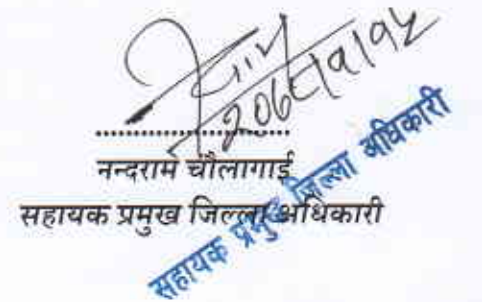 नन्दराम चौलागाई
सहायक प्रमुख जिल्ला अधिकारी
सहायक प्रमुख जिल्ला अधिकारी